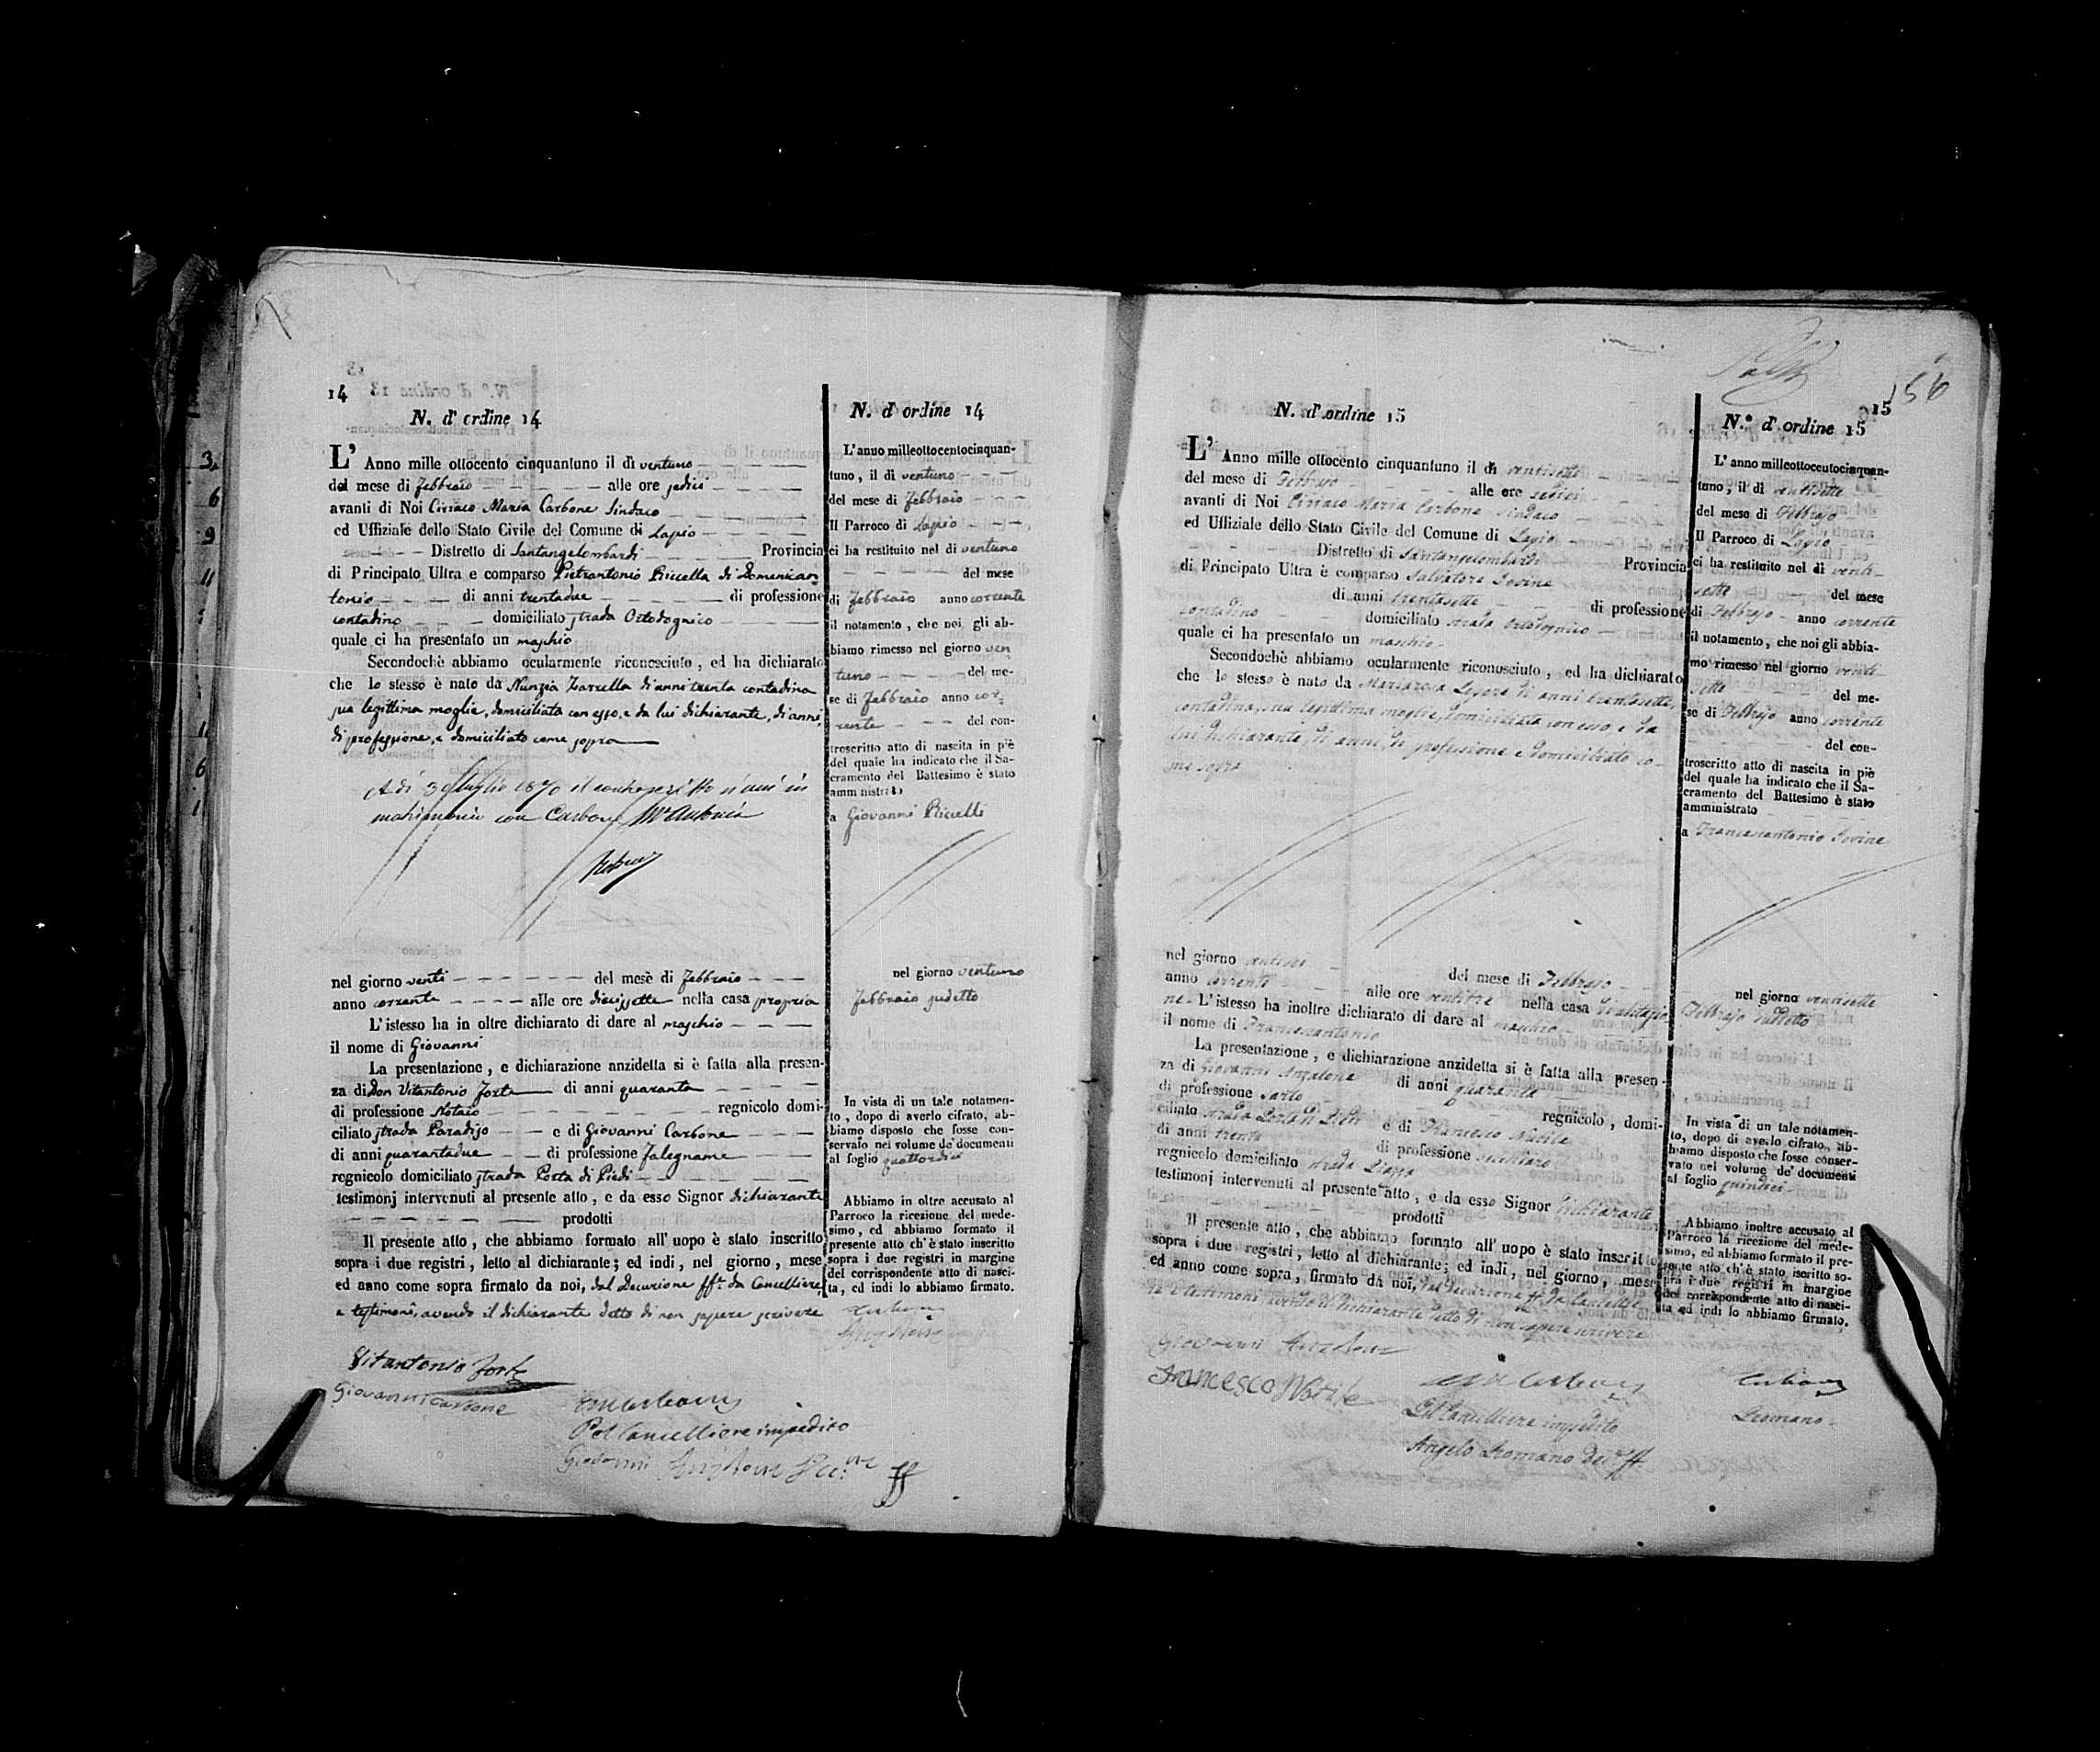 14
N. d' ordine 14
L' Anno mille ottocento cinquantuno il dì ventuno
del mese di Febbraio alle ore sedici
avanti di Noi Ciriaco Maria Carbone Sindaco
ed Uffiziale dello Stato Civile del Comune di Lapio
Distretto di Santangelombardi Provincia
di Principato Ultra e comparso Pietrantonio Riccella di Domenican-
tonio di anni trentadue di professione
contadino domiciliato strada Ortodognico
quale ci ha presentato un maschio
Secondochè abbiamo ocularmente riconosciuto, ed ha dichiarato
che lo stesso è nato da Nunzia Zarrella di anni trenta contadina
sua legittima moglie, domiciliata con esso, e da lui dichiarante, di anni,
di professione, e domiciliato come sopra
A dì 3 Luglio 1870 il controscritto s'unì in
matrimonio con Carbone Mª Antonia
nel giorno venti del mese di Febbraio
anno corrente alle ore diecissette nella casa propria
L'istesso ha in oltre dichiarato di dare al maschio
il nome di Giovanni
La presentazione, e dichiarazione anzidetta si è fatta alla presen-
za di Don Vitantonio Forte di anni quaranta
di professione Notaio regnicolo domi-
ciliato strada Paradiso e di Giovanni Carbone
di anni quarantadue di professione Falegname
regnicolo domiciliato strada Porta di Piedi
testimonj intervenuti al presente atto, e da esso Signor dichiarante
prodotti
Il presente atto, che abbiamo formato all' uopo è stato inscritto
sopra i due registri, letto al dichiarante; ed indi, nel giorno, mese
ed anno come sopra firmato da noi, dal Decurione ff. da Cancelliere,
e testimoni, avendo il dichiarante detto di non sapere scrivere
Vitantonio Forte
Giovanni Carbone
Pel Cancelliere impedito
Giovanni
ff
N. d' ordine 14
L' anno milleottocentocinquan-
tuno, il dì ventuno
del mese di Febbraio
Il Parroco di Lapio
ci ha restituito nel dì ventuno
del mese
di Febbraio anno corrente
il notamento, che noi gli ab-
biamo rimesso nel giorno ven
tuno del me-
se di Febbraio anno cor-
rente del con-
troscritto atto di nascita in piè
del quale ha indicato che il Sa-
cramento del Battesimo è stato
amministrato
a Giovanni Riccelli
nel giorno ventuno
Febbraio sudetto
In vista di un tale notamen-
to, dopo di averlo cifrato, ab-
biamo disposto che fosse con-
servato nel volume de' documenti
al foglio quattordici
Abbiamo in oltre accusato al
Parroco la ricezione del mede-
simo, ed abbiamo formato il
presente atto ch'è stato inscritto
sopra i due registri in margine
del corrispondente atto di nasci-
ta, ed indi lo abbiamo firmato.
156
15
N. d' ordine 15
L' Anno mille ottocento cinquantuno il dì ventisette
del mese di Febbrajo alle ore sedici
avanti di Noi Ciriaco Maria Carbone Sindaco
ed Uffiziale dello Stato Civile del Comune di Lapio
Distretto di Santangelombardi Provincia
di Principato Ultra è comparso Salvatore Iovine
di anni trentasette di professione
contadino domiciliato strada Ortodognico
quale ci ha presentato un maschio
Secondochè abbiamo ocularmente riconosciuto, ed ha dichiarato
che lo stesso è nato da Mariarosa Lepore di anni trentasette,
contadina, sua legittima moglie, domiciliata con esso, e da
lui dichiarante, di anni, di professione e domiciliato co-
me sopra
nel giorno del mese di Febbrajo
anno corrente alle ore ventitre nella casa di abitazio-
ne. L'istesso ha inoltre dichiarato di dare al maschio
il nome di Francescantonio
La presentazione, e dichiarazione anzidetta si è fatta alla presen-
za di Giovanni Anzalone di anni quaranta
di professione sarto regnicolo, domi-
ciliato strada Porta di Piedi e di Francesco Nobile
di anni trenta di professione
regnicolo domiciliato strada Piazza
testimonj intervenuti al presente atto, e da esso Signor dichiarante
prodotti
Il presente atto, che abbiamo formato all' uopo è stato inscritto
sopra i due registri, letto al dichiarante; ed indi, nel giorno, mese
ed anno come sopra, firmato da noi, dal Decurione ff. da Cancellie-
re e testimoni avendo il dichiarante detto di non sapere scrivere
Giovanni Anzalone
Francesco Nobile
Pel Cancelliere impedito
Angelo Romano Dec. ff.
N.° d' ordine 15
L' anno milleottocentocinquan-
tuno, il dì ventisette
del mese di Febbrajo
Il Parroco di Lapio
ci ha restituito nel dì venti-
sette del mese
di Febbrajo anno corrente
il notamento, che noi gli abbia-
mo rimesso nel giorno venti-
sette del me-
se di Febbrajo anno corrente
del con-
troscritto atto di nascita in piè
del quale ha indicato che il Sa-
cramento del Battesimo è stato
amministrato
a Francescantonio Iovine
nel giorno ventisette
Febbrajo suddetto
In vista di un tale notamen-
to, dopo di averlo cifrato, ab-
biamo disposto che fosse conser-
vato nel volume de' documenti
al foglio quindici
Abbiamo inoltre accusato al
Parroco la ricezione del mede-
simo, ed abbiamo formato il pre-
sente atto ch'è stato iscritto so-
pra i due registri in margine
del corrispondente atto di nasci-
ta ed indi lo abbiamo firmato.
Carbone
Romano